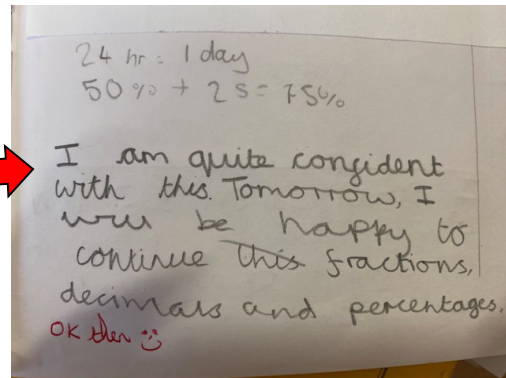 24 hr = 1 day
50% + 25 = 75%
I am quite confident
with this. Tomorrow, I
will be happy to
continue this fractions,
decimals and percentages.
OK then